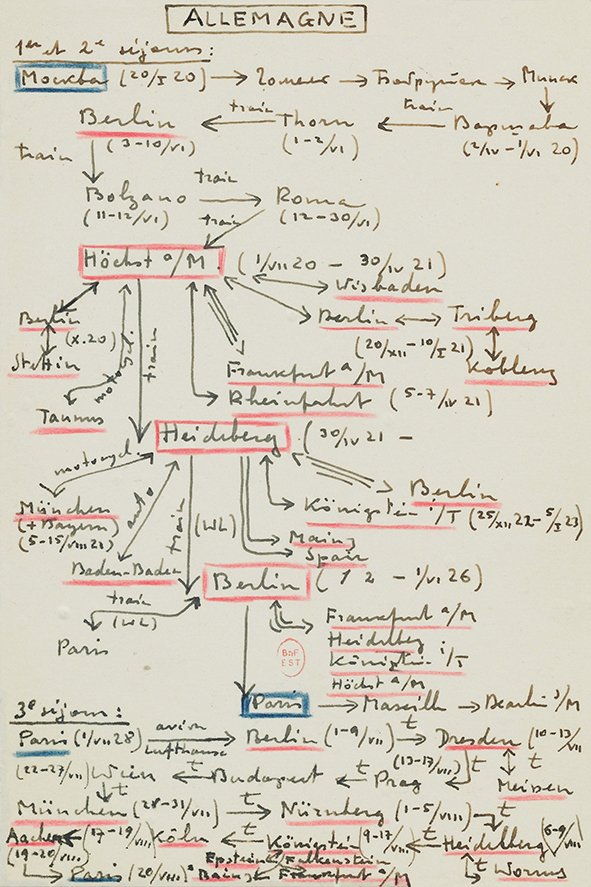 ALLEMAGNE
1er et 2e séjours :
Москва (20/I 20) → Гомель → Бобруйск → Минск
Berlin train Thorn train Варшава
train (3-10/VI) (1-2/VI) (2/IV - 1/VI 20)
Bolzano train Roma
(11-12/VI) train (12-30/VI)
Höchst a/M. (1/VII 20 - 30/IV 21)
Wisbaden
Berlin Berlin ↔ Triberg
(X.20) (20/XII - 10/I 21)
Stettin motocycl. train Frankfurt a/M Koblenz
Taunus Rheinfahrt (5-7/IV 21)
Heidelberg (30/IV 21 -
motocycl. Berlin
München auto train (WL) Königstein i/T (25/XII 22 - 5/I 23)
(+ Bayern)
(5-15/VIII 21) Mainz
Baden-Baden Spair
Berlin ( 1 2 - 1/VI 26)
train
(WL) Frankfurt a/M
Paris Heidelberg
BnF
EST
Königstein i/T
Höchst a/M
Paris → Marseille → Bearlin s/M
3e séjour :
Paris (1/VII 28) avion Lufthansa Berlin (1-9/VII) t Dresden (10-13/VII
(22-27/VII) Wien t Budapest t Prag (13-17/VII) t t Meissen
t
München (28-31/VII) t Nürnberg (1-5/VIII) t
Aachen (17-19/VIII) Köln t Königstein (9-17/VIII) t Heidelberg (6-9/VIII)
(19-20/VIII) Epstein Falkenstein t Worms
Paris (20/VIII) Bains Frankfurt a/M